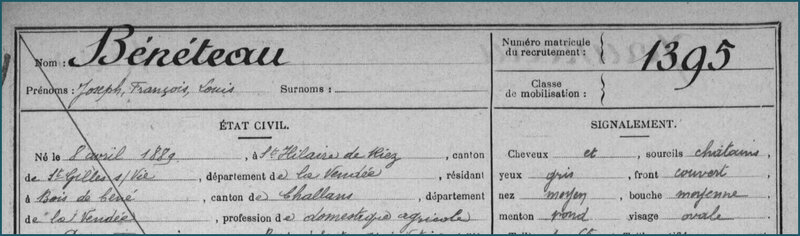 Nom : Bénéteau
Prénoms : Joseph, François, Louis Surnoms :
Numéro matricule
du recrutement : 1395
Classe
de mobilisation :
ÉTAT CIVIL.
Né le 8 avril 1889, à St Hilaire de Riez canton
de St Gilles s/ Vie, département de la Vendée, résidant
à Bois de Céné, canton de Challans, département
de la Vendée, profession de domestique agricole
SIGNALEMENT.
Cheveux et sourcils châtains
yeux gris front couvert
nez moyen, bouche moyenne
menton rond visage ovale